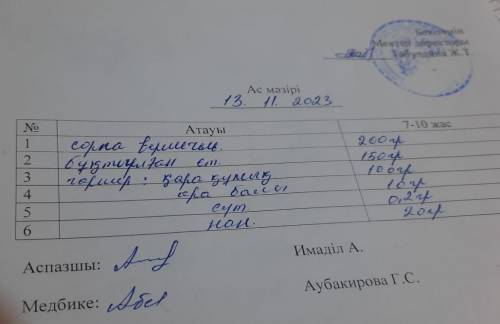 Бекітемін
Мектеп директоры
Ас мәзірі
13. 11. 2023
№ Атауы 7-10 жас
1 сорпа вермишель 200гр
2 бұқтырылған ет 150гр
3 гарнир: қарақұмық 100гр
4 ара балы 10гр
5 сүт 0,2гр
6 нан. 20гр
Аспазшы: Имаділ А.
Медбике: Аубакирова Г.С.